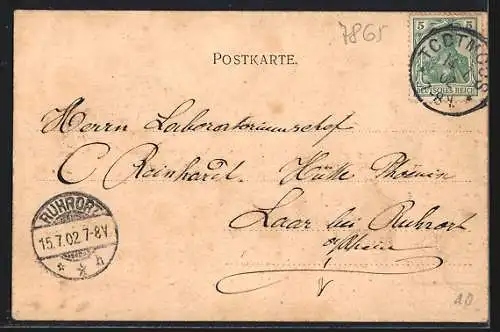 7865
5 5
DEUTSCHES REICH
TODTMOOS
POSTKARTE.
Herrn Laboratoriumschef
C Reinhardt. Hütte Phönix
Laar bei Ruhrort
a/Rhein
RUHRORT
15.7.02.7-8V.
* * h